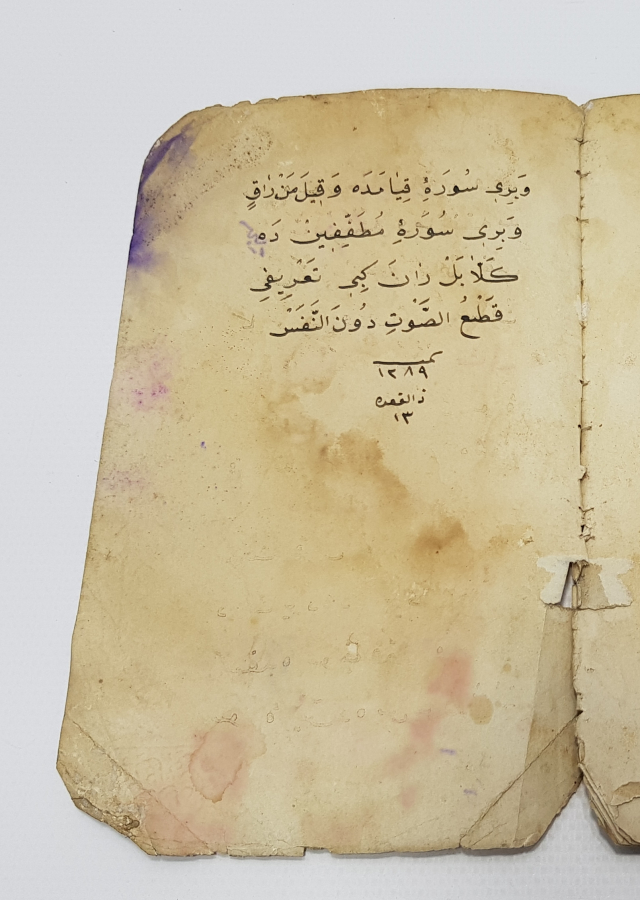 وَبِرِى سُورَۀِ قِيَامَدَه وَقِيلَ مَنْ رَاقٍ
وَبِرِى سُورَۀِ مُطَفِّفِينْ دَه
كَلَّا بَلْ رَانَ كِبِى تَعْرِيفِى
قَطْعُ الصَّوْتِ دُونَ النَّفَسْ
١٢٨٩
ذالقعده
١٣